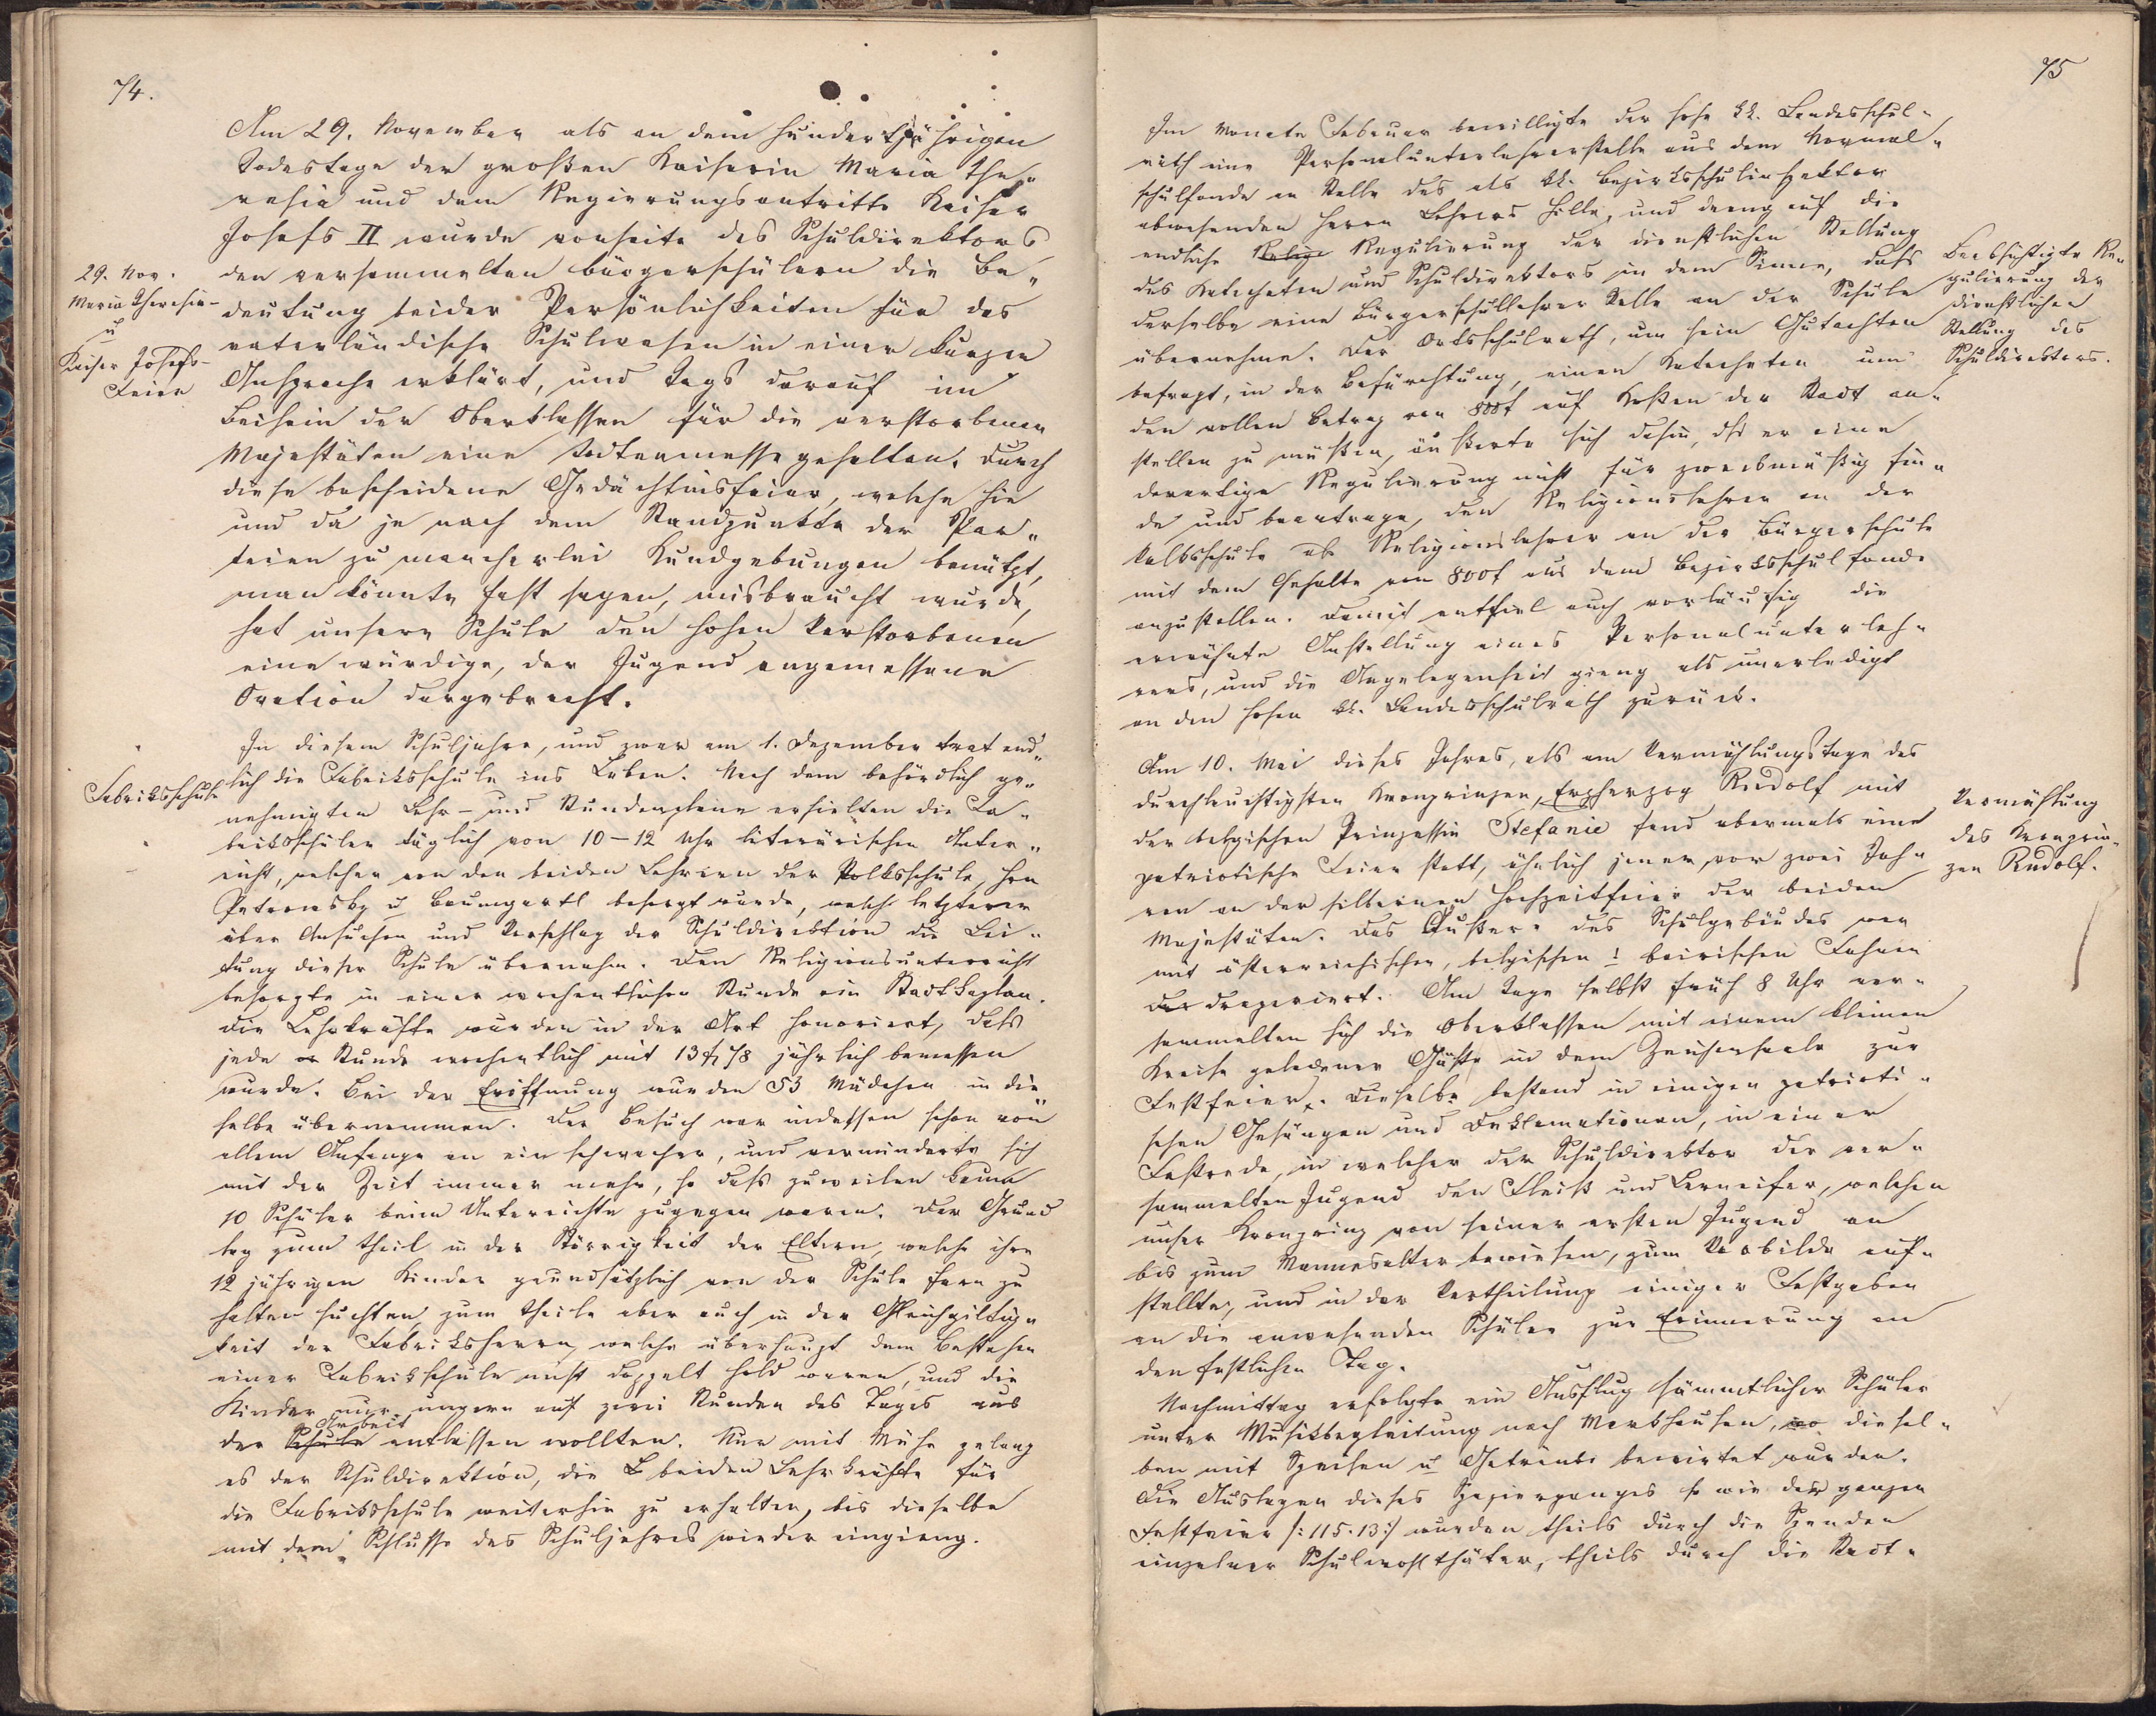 74.
Am 29. November als an dem hundertjährigen
Todestage der großen Kaiserin Maria The„
resia und dem Regierungsantritte Kaiser
Josefs II wurde vonseite des Schuldirektors
29. Nov.
Maria Theresia-
u
Kaiser Josefs-
Feier
den versammelten Bürgerschülern die Be„
deutung beider Persönlichkeiten für das
vaterländische Schulwesen in einer kurzen
Ansprache erklärt, und Tags darauf im
Beisein der Oberklassen für die verstorbenen
Majestäten eine Todtenmesse gehalten. Durch
diese bescheidene Gedächtnisfeier, welche hie
und da je nach dem Standpunkte der Par„
teien zu mancherlei Kundgebungen benützt,
man könnte fast sagen, misbraucht wurde,
hat unsere Schule den hohen Verstorbenen
eine würdige, der Jugend angemessene
Ovation dargebracht.
In diesem Schuljahre, und zwar am 1. Dezember trat end„
Fabriksschule
lich die Fabriksschule ins Leben. Nach dem behördlich ge„
nehmigten Lehr- und Stundenplane erhielten die Fa„
briksschüler täglich von 10–12 Uhr literärischen Unter„
richt, welcher von den beiden Lehrern der Volksschule, Hrn
Petrowsky u Baumgartl besorgt wurde, welch letzterer
über Ansuchen und Vorschlag der Schuldirektion die Lei„
tung dieser Schule übernahm. Den Religionsunterricht
besorgte in einer wochentlichen Stunde ein Stadtkaplan.
Die Lehrkräfte wurden in der Art honoriert, dass
jede Stunde wochentlich mit 13 f 78 jährlich bemessen
wurde. Bei der Eröffnung wurden 53 Mädchen in die„
selbe übernommen. Der Besuch war indessen schon von
allem Anfange an ein schwacher, und verminderte sich
mit der Zeit immer mehr, so dass zuweilen kaum
10 Schüler beim Unterrichte zugegen waren. Der Grund
lag zum Theil in der Störrigkeit der Eltern, welche ihre
12 jährigen Kinder grundsätzlich von der Schule fern zu
halten suchten, zum Theile aber auch in der Gleichgiltig„
keit der Fabriksherrn, welche überhaupt dem Bestehen
einer Fabrikschule nicht doppelt hold waren, und die
Kinder nur ungern auf zwei Stunden des Tages aus
Arbeit
der Schule entlassen wollten. Nur mit Mühe gelang
es der Schuldirektion, die beiden Lehrkräfte für
die Fabriksschule weiterhin zu erhalten, bis dieselbe
mit dem Schlusse des Schuljahres wieder eingieng.
75
Im Monate Februar bewilligte der hohe kk. Landesschul„
rath eine Personalunterlehrerstelle aus dem Normal„
schulfonde an Stelle des als kk. Bezirksschulinspektor
abwesenden Herrn Lehrers Hille, und drang auf die
endliche Relige Regulierung der dienstlichen Stellung
des Katecheten und Schuldirektors in dem Sinne, dass
Beabsichtigte Re„
gulierung der
dienstlichen
Stellung des
Schuldirektors.
derselbe eine Bürgerschullehrer Stelle an der Schule
übernehme. Der Ortsschulrath, um sein Gutachten
befragt, in der Befürchtung, einen Katecheten um
den vollen Betrag von 800 f auf Kosten der Stadt an„
stellen zu müßen, äußerte sich dahin, dss er eine
derartige Regulierung nicht für zweckmäßig fin„
de und beantrage, den Religionslehrer an der
Volksschule als Religionslehrer an der Bürgerschule
mit dem Gehalte von 800 f aus dem Bezirksschulfonde
anzustellen. Damit entfiel auch vorläufig die
erwähnte Anstellung eines Personalunterleh„
rers, und die Angelegenheit gieng als unerledigt
an den hohen kk. Landesschulrath zurück.
Am 10. Mai dieses Jahres, als am Vermählungstage des
durchlauchtigsten Kronprinzen, Erzherzog Rudolf mit
Vermählung
des Kronprin„
zen Rudolf.
der belgischen Prinzessin Stefanie fand abermals eine
patriotische Feier statt, ähnlich jener, vor zwei Jah„
ren an der silbernen Hochzeitfeier der beiden
Majestäten. Das Äußere des Schulgebäudes war
mit österreichischen, belgischen u bairischen Fahnen
dra drapeiert. Am Tage selbst früh 8 Uhr ver„
sammelten sich die Oberklassen mit einem kleinen
Kreise geladener Gäste in dem Zeichensaale zur
Festfeier. Dieselbe bestand in einigen patrioti„
schen Gesängen und Deklamationen, in einer
Festrede, in welcher der Schuldirektor der ver„
sammelten Jugend den Fleiß und Lerneifer, welchen
unser Kronprinz von seiner ersten Jugend an
bis zum Mannesalter bewiesen, zum Vorbilde auf„
stellte, und in der Vertheilung einiger Festgaben
an die anwesenden Schüler zur Erinnerung an
den festlichen Tag.
Nachmittag erfolgte ein Ausflug sämmtlicher Schüler
unter Musikbegleitung nach Markhausen, wo diesel„
ben mit Speisen u Getränke bewirtet wurden.
Die Auslagen dieses Spazierganges so wie der ganzen
Festfeier /: 115·13 :/ wurden theils durch die Spenden
einzelner Schulwohlthäter, theils durch die Stadt„